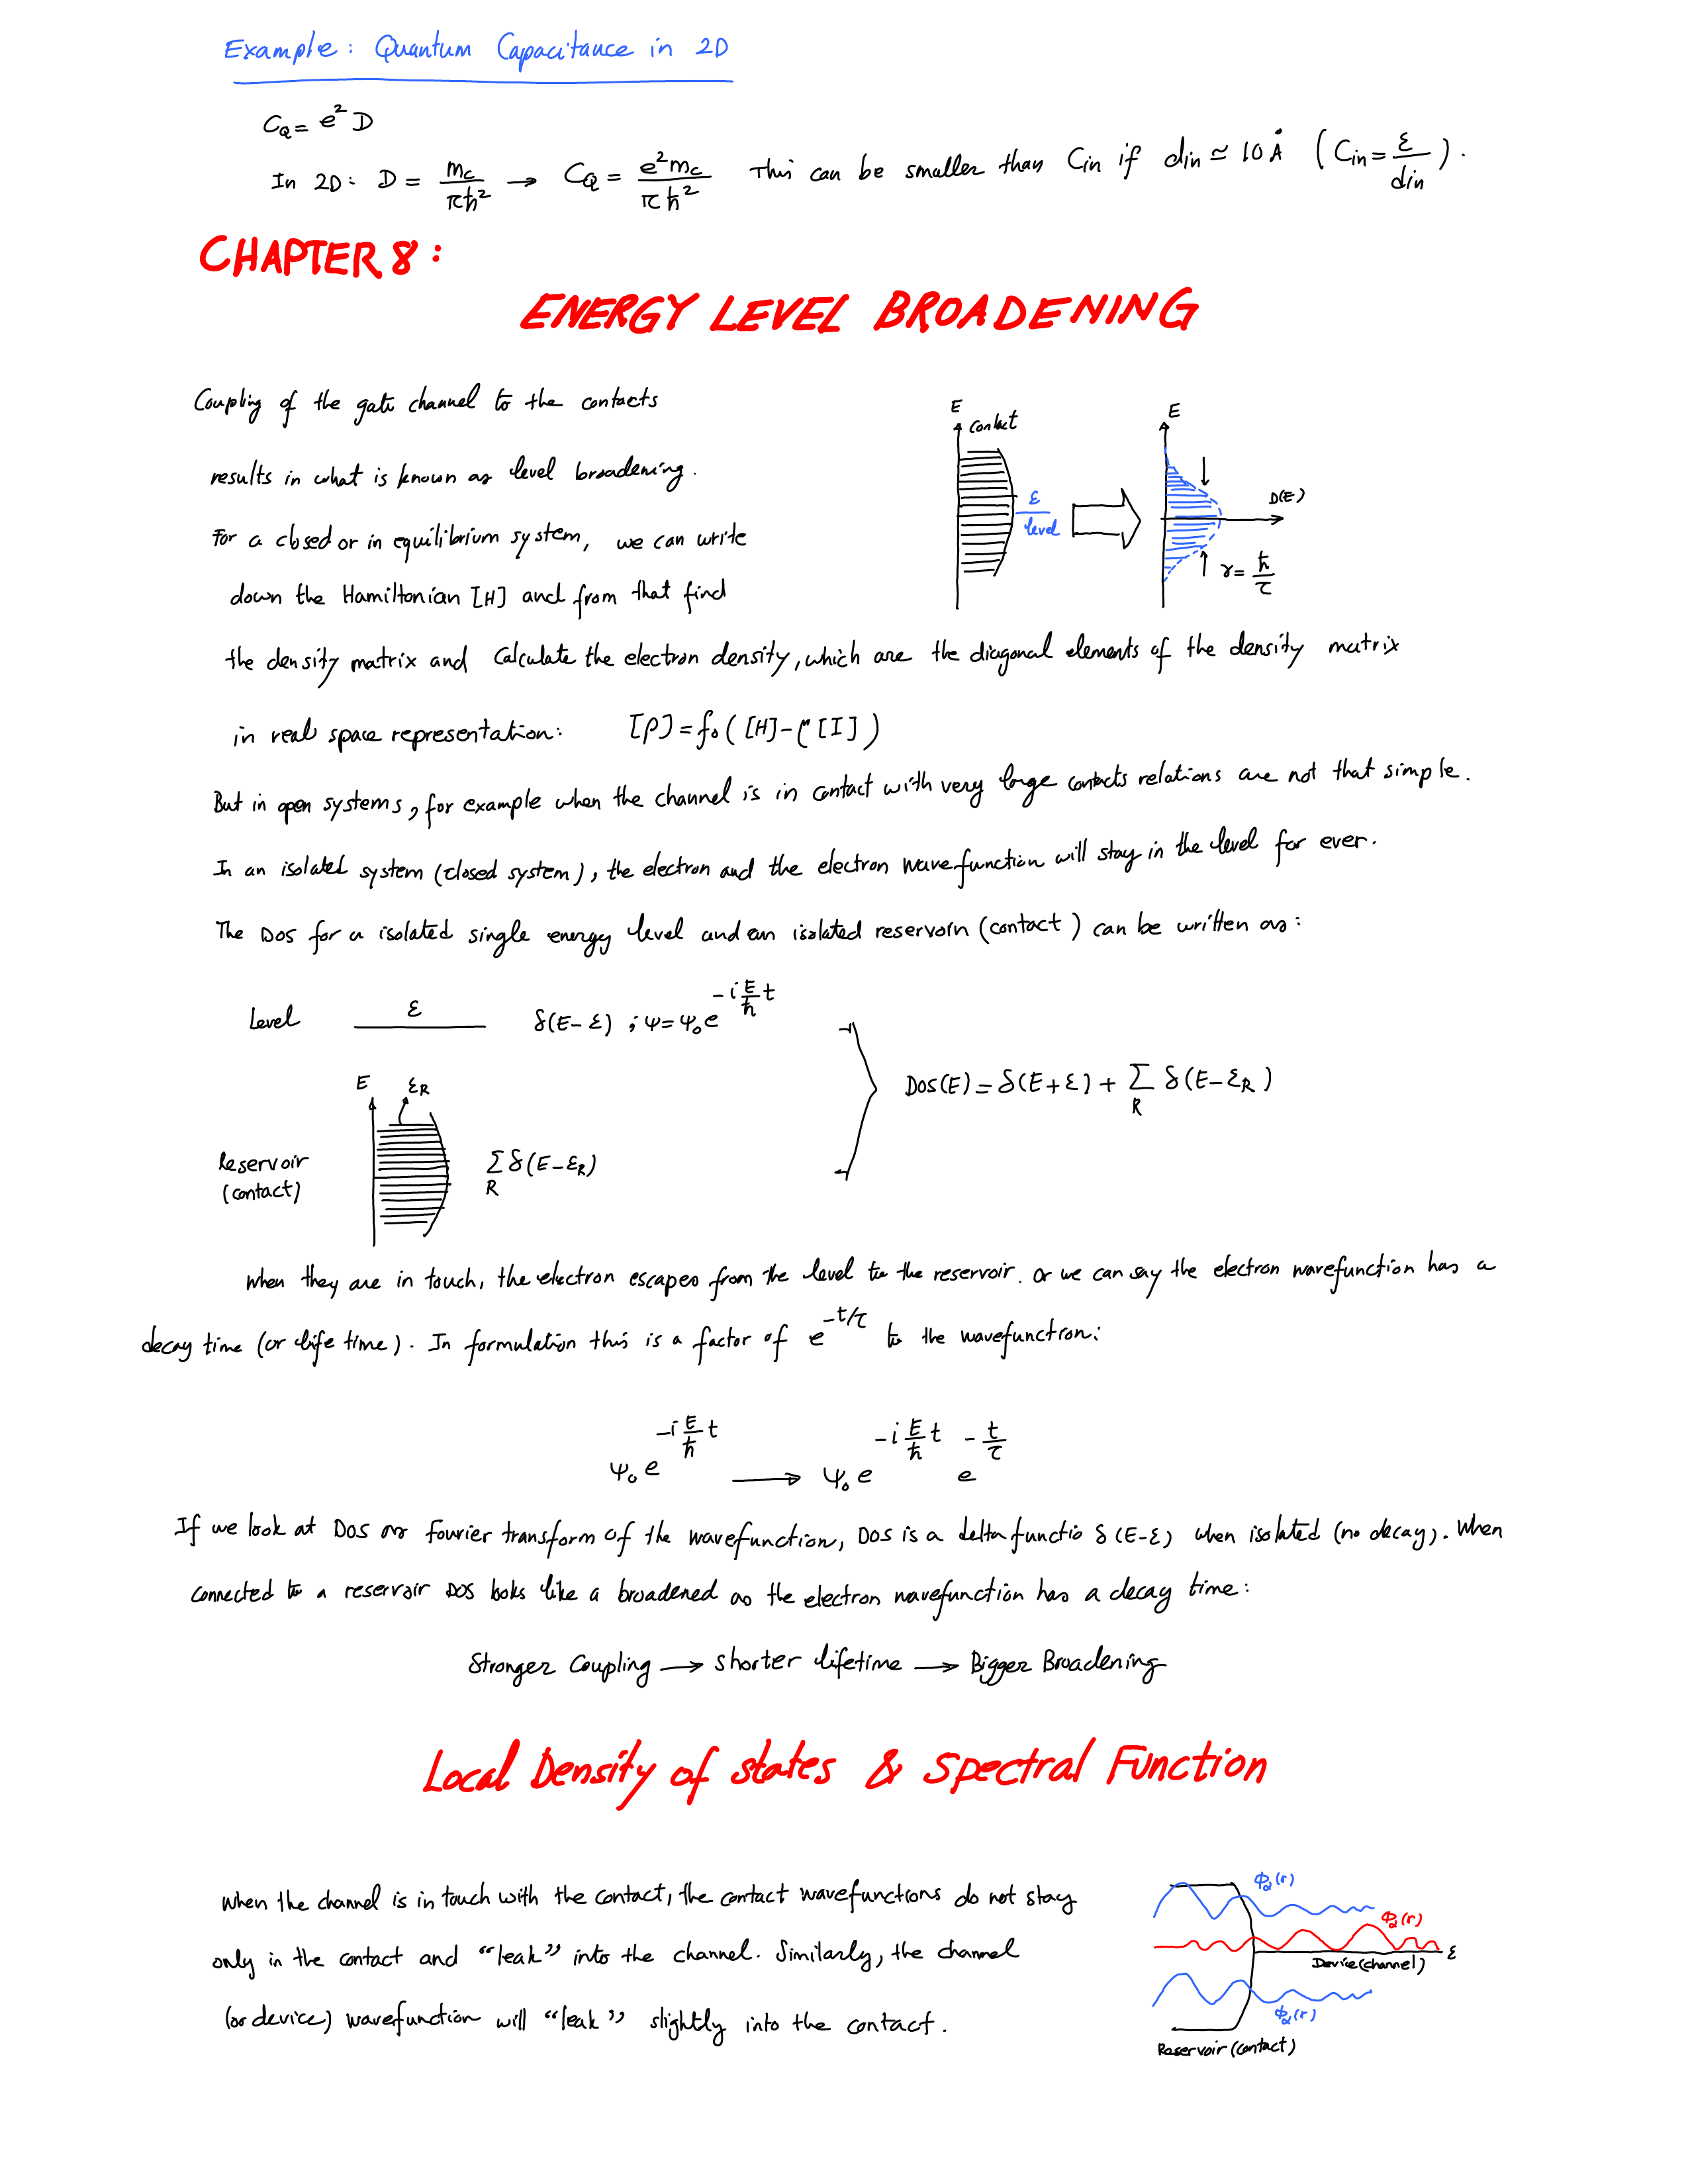 Example: Quantum Capacitance in 2D
C_Q = e² D
In 2D: D = m_c / πħ² → C_Q = e² m_c / πħ² This can be smaller than Cin if din ≃ 10 Å (Cin = ε / din).
CHAPTER 8:
ENERGY LEVEL BROADENING
Coupling of the gate channel to the contacts
results in what is known as level broadening.
For a closed or in equilibrium system, we can write
down the Hamiltonian [H] and from that find
E
contact
ε
level
E
D(E)
γ = ħ / τ
the density matrix and calculate the electron density, which are the diagonal elements of the density matrix
in real space representation: [ρ] = f₀([H] - μ[I])
But in open systems, for example when the channel is in contact with very large contacts relations are not that simple.
In an isolated system (closed system), the electron and the electron wavefunction will stay in the level for ever.
The DOS for a isolated single energy level and an isolated reservoir (contact) can be written as:
Level ε δ(E-ε) ; ψ = ψ₀ e^{-i E/ħ t}
DOS(E) = δ(E+ε) + Σ_R δ(E-ε_R)
E ε_R
Reservoir
(contact)
Σ_R δ(E-ε_R)
when they are in touch, the electron escapes from the level to the reservoir. Or we can say the electron wavefunction has a
decay time (or life time). In formulation this is a factor of e^{-t/τ} to the wavefunction:
ψ₀ e^{-i E/ħ t} → ψ₀ e^{-i E/ħ t} e^{-t/τ}
If we look at DOS as fourier transform of the wavefunction, DOS is a delta functio δ(E-ε) when isolated (no decay). When
connected to a reservoir DOS looks like a broadened as the electron wavefunction has a decay time:
Stronger Coupling → shorter lifetime → Bigger Broadening
Local Density of states & Spectral Function
when the channel is in touch with the contact, the contact wavefunctions do not stay
only in the contact and "leak" into the channel. Similarly, the channel
(or device) wavefunction will "leak" slightly into the contact.
Φ_α(r)
Φ_α(r)
ε
Device (channel)
Φ_α(r)
Reservoir (contact)